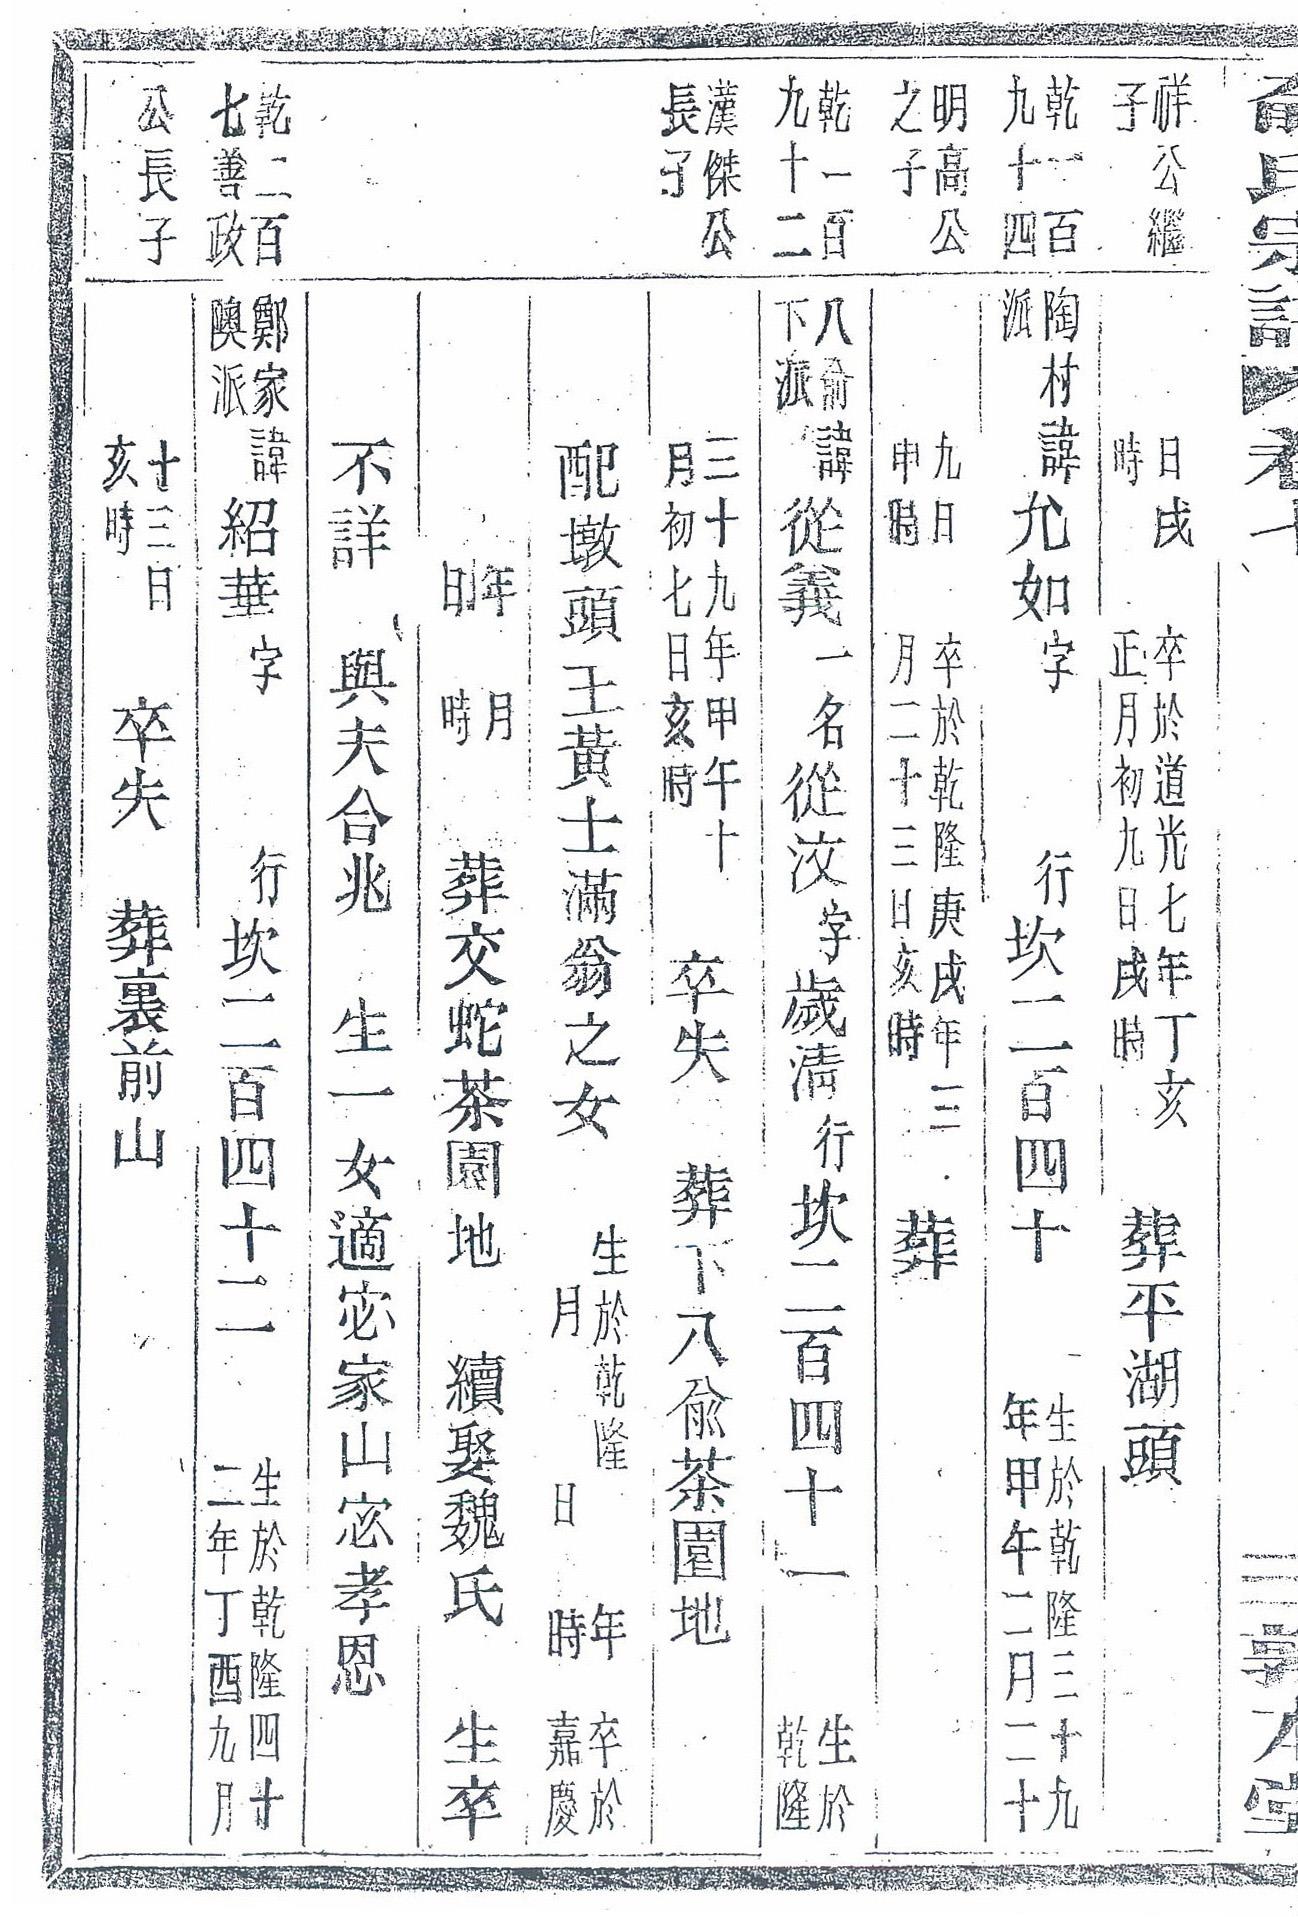 俞氏宗譜 卷十 敦本堂
祥公繼
子
日戌
時
卒於道光七年丁亥
正月初九日戌時
葬平湖頭
乾一百
九十四
陶村
派
諱允如字 行坎二百四十
生於乾隆三十九
年甲午二月二十
明高公
之子
九日
申時
卒於乾隆庚戌年三
月二十三日亥時
葬
乾一百
九十二
八俞
下派
諱從義一名從汶字歲清行坎二百四十一
生於
乾隆
漢傑公
長子
三十九年甲午十
月初七日亥時
卒失 葬下八俞茶園地
配墩頭王黃土滿翁之女
生於乾隆 年
月 日 時
卒於
嘉慶
年 月
日 時
葬交蛇茶園地 續娶魏氏 生卒
不詳 與夫合兆 生一女適宓家山宓宓孝恩
乾二百
七善政
鄭家
陳派
諱紹華字 行坎二百四十二
生於乾隆四十
二年丁酉九月
公長子
十三日
亥時
卒失 葬裏前山